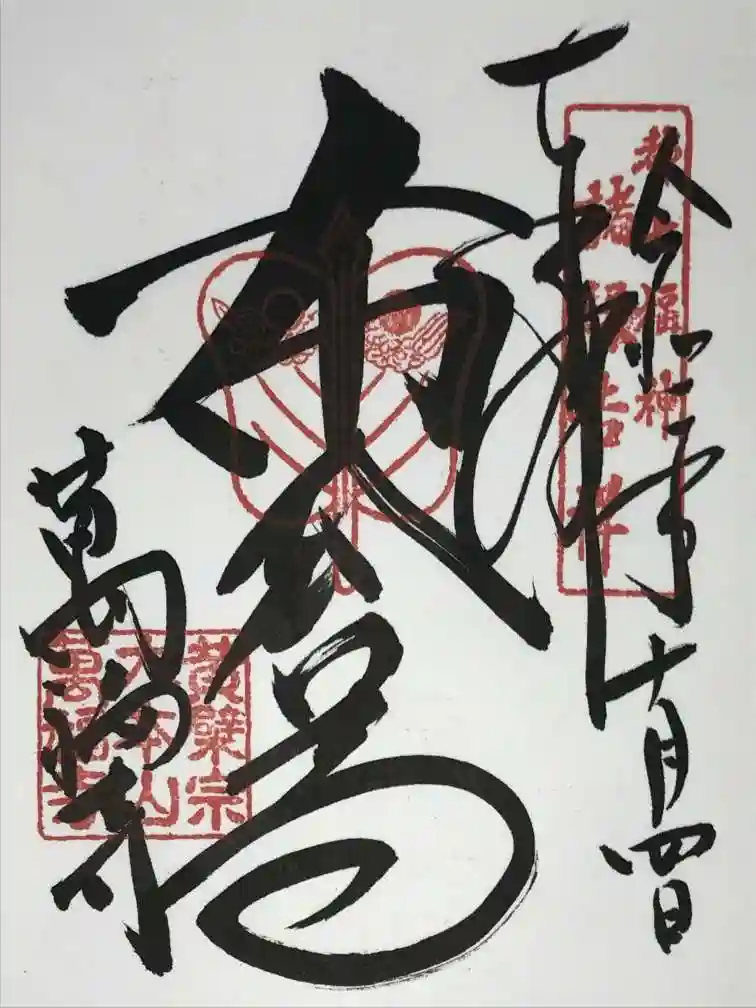 奉拝
令和二年十月四日
都七福神
諸縁吉祥
布袋尊
萬福寺
黄檗宗
大本山
萬福寺